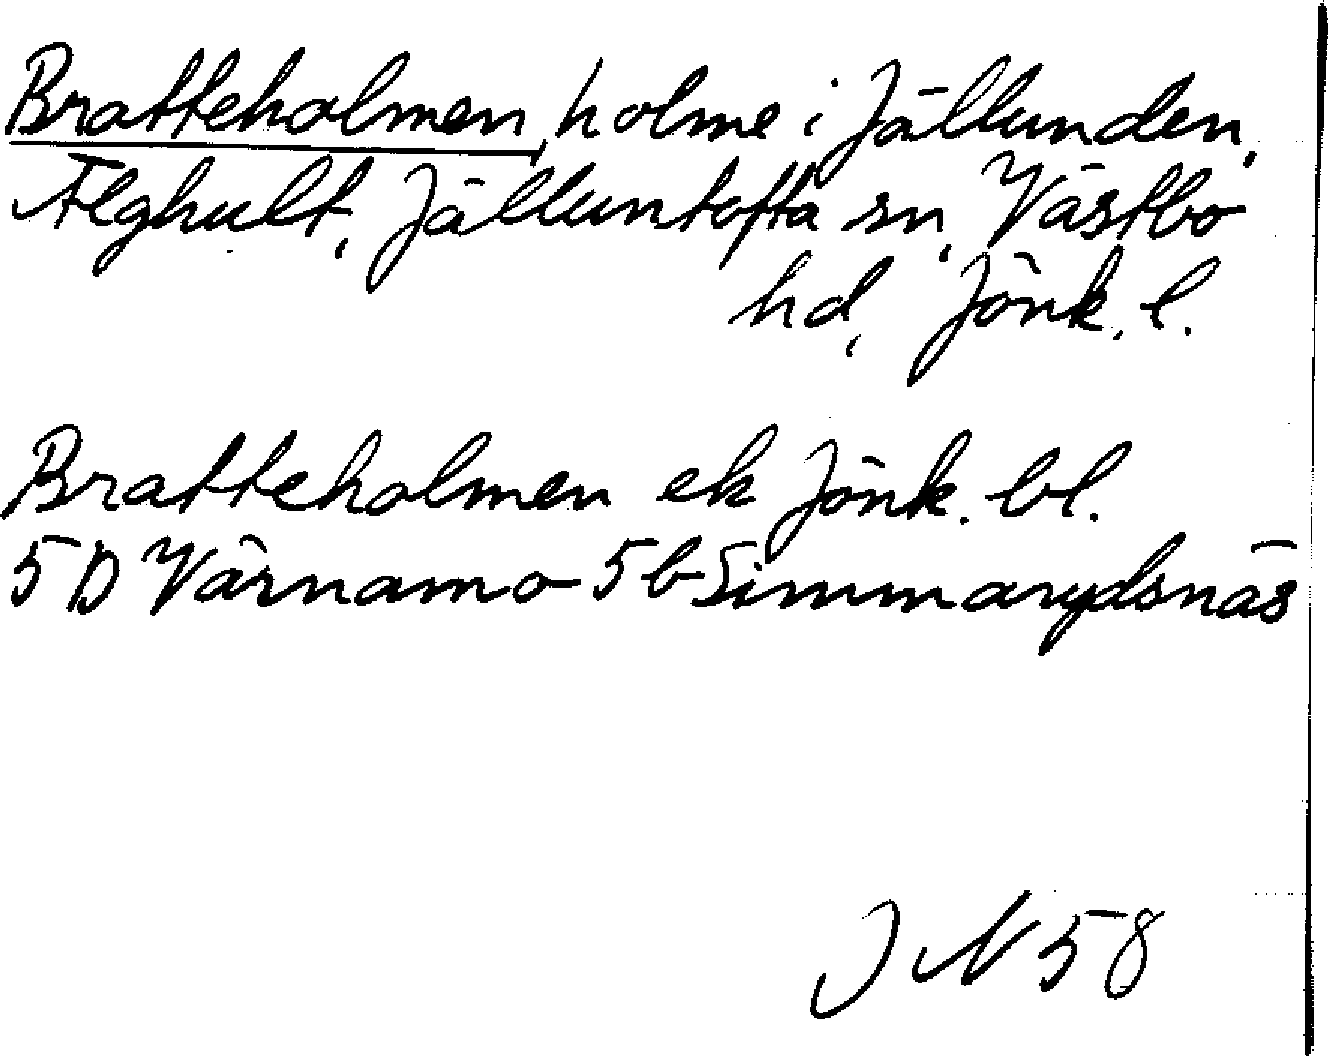 Bratteholmen, holme i Jällunden,
Älghult, Jälluntofta sn, Västbo
hd, Jönk. l.
Bratteholmen ek Jönk. bl.
5 D Värnamo 5b Simmarydsnäs
J N 58